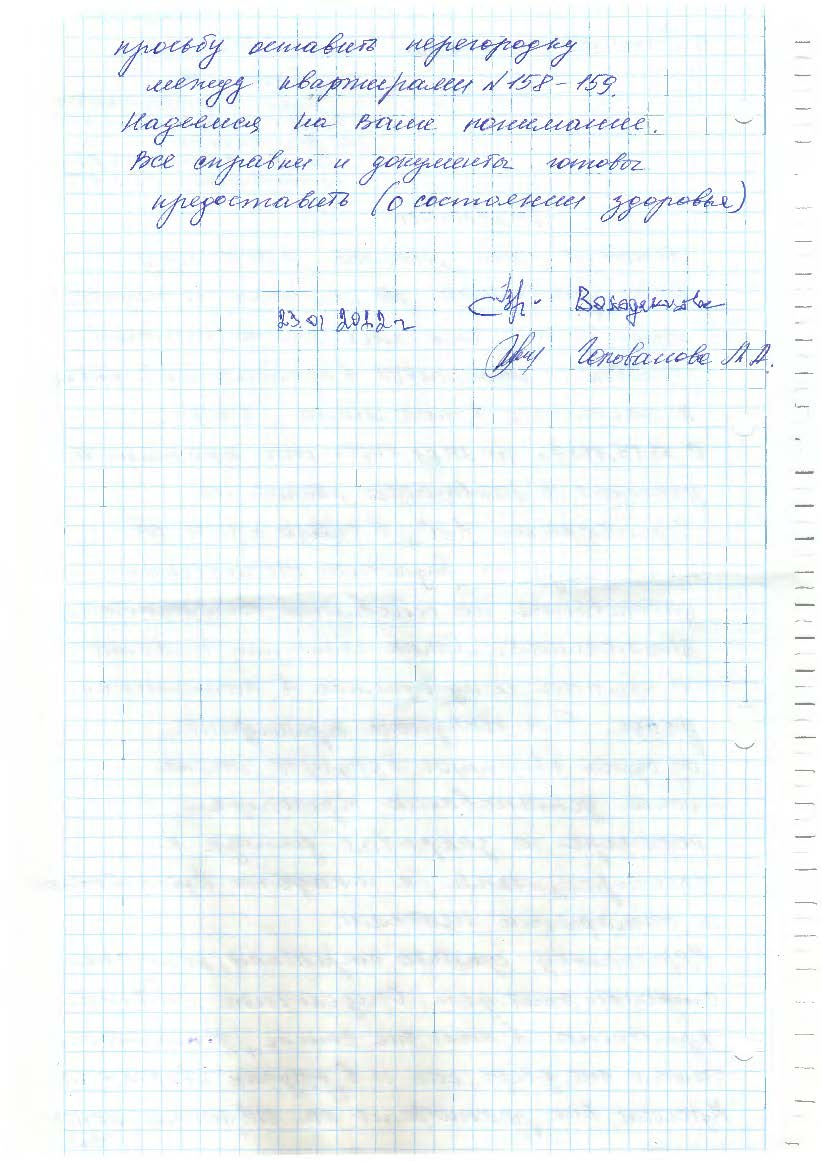 просьбу оставить перегородку
между квартирами №158-159.
Надеемся на Ваше понимание.
Все справки и документы готовы
предоставить (о состоянии здоровья)
23.01 2012 г
Голованова М.А.